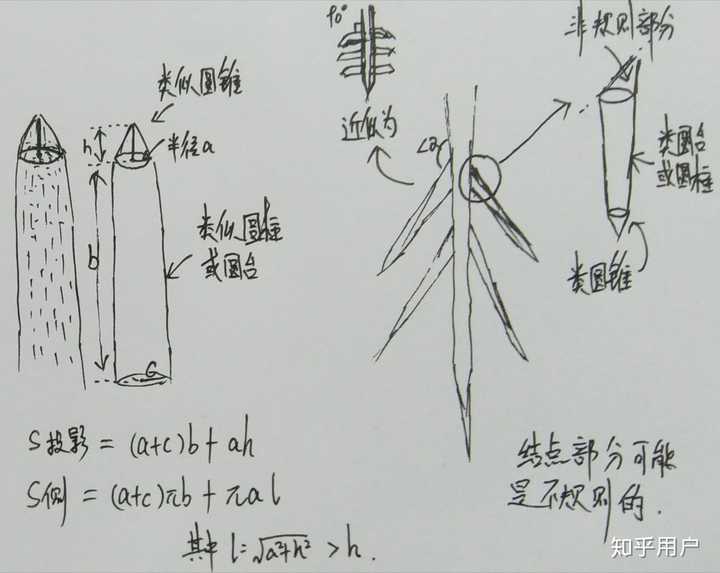 90°
类似圆锥
h
半径a
b
类似圆柱
或圆台
近似为
∠a
非规则部分
类圆台
或圆柱
类圆锥
S投影 = (a+c)b + ah
S侧 = (a+c)πb + πal
其中 l=√a²+h² > h.
结点部分可能
是不规则的.
知乎用户